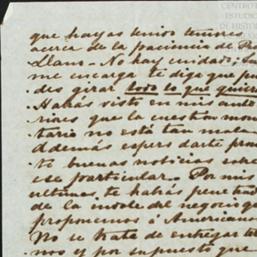 CENTRO
ESTUDIO
DE HISTOR
que hayas tenido temores
acerca de la paciencia de
Llano. No hay cuidado;
me encarga te diga que
des girar todo lo que quier
Habrás visto en mis ante
riores que la cuestión mon
taria no está tan mala
Además espero darte pron
te buenas noticias sobre
ese particular. Por mis
ultimas, te habás penetrad
de la indole del negocio q
proponemos a Americano
No se trata de entregar te
nos y por supuesto que